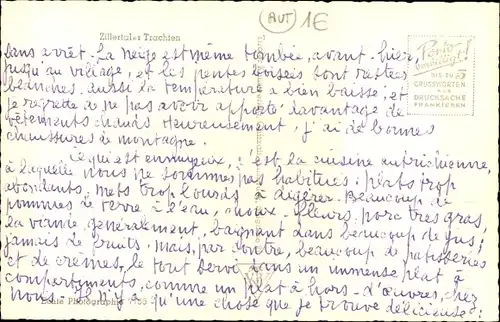 Zillertaler Trachten
AUT 1E
Porto
bewilligt!
BIS ZU 5
GRUSSWORTEN
ALS
DRUCKSACHE
FRANKIEREN
sans arrêt. La neige est même tombée, avant-hier,
jusqu'au village, et les pentes boisées sont restées
blanches. aussi la température a bien baissé; et
je regrette de ne pas avoir apporté davantage de
vêtements chauds. Heureusement, j'ai de bonnes
chaussures de montagne.
Ce qui est ennuyeux, c'est la cuisine autrichienne,
à laquelle nous ne sommes pas habitués: plats trop
abondants, mets trop lourds à digérer. Beaucoup de
pommes de terre à l'eau, choux-fleurs, porc très gras,
la viande, généralement, baignant dans beaucoup de jus;
jamais de fruits. mais, par contre, beaucoup de patisseries
et de crèmes, le tout servi dans un immense plat à
compartiments, comme un plat à hors-d'œuvres, chez
nous. Il n'y a qu'une chose que je trouve délicieuse:
Echte Photographie 7 65